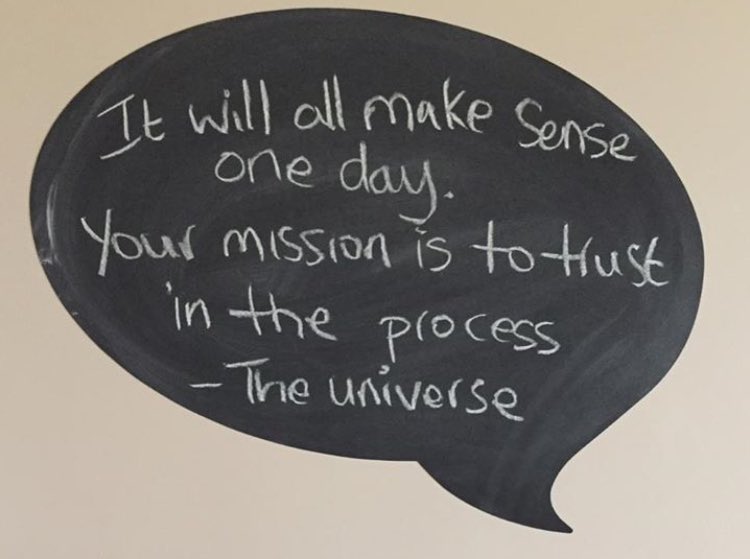 It will all make sense
one day.
Your mission is to trust
in the process
- The universe